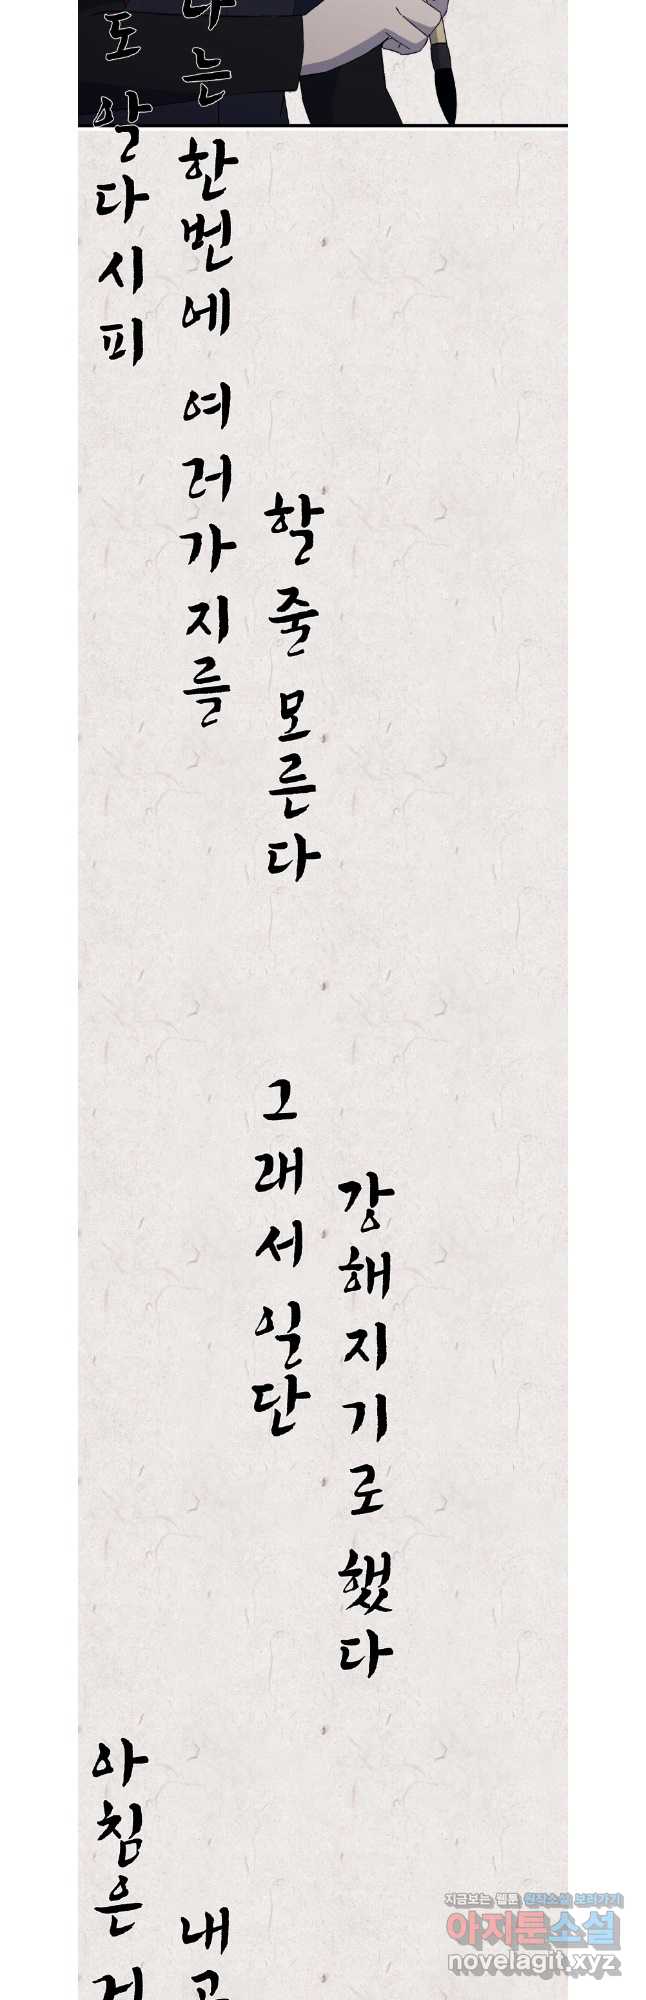 도 알다시피
는 한번에 여러가지를
할 줄 모른다
그래서 일단
강해지기로 했다
아침은
내
지금보는 웹툰 원작소설 보러가기
아지툰소설
novelagit.xyz